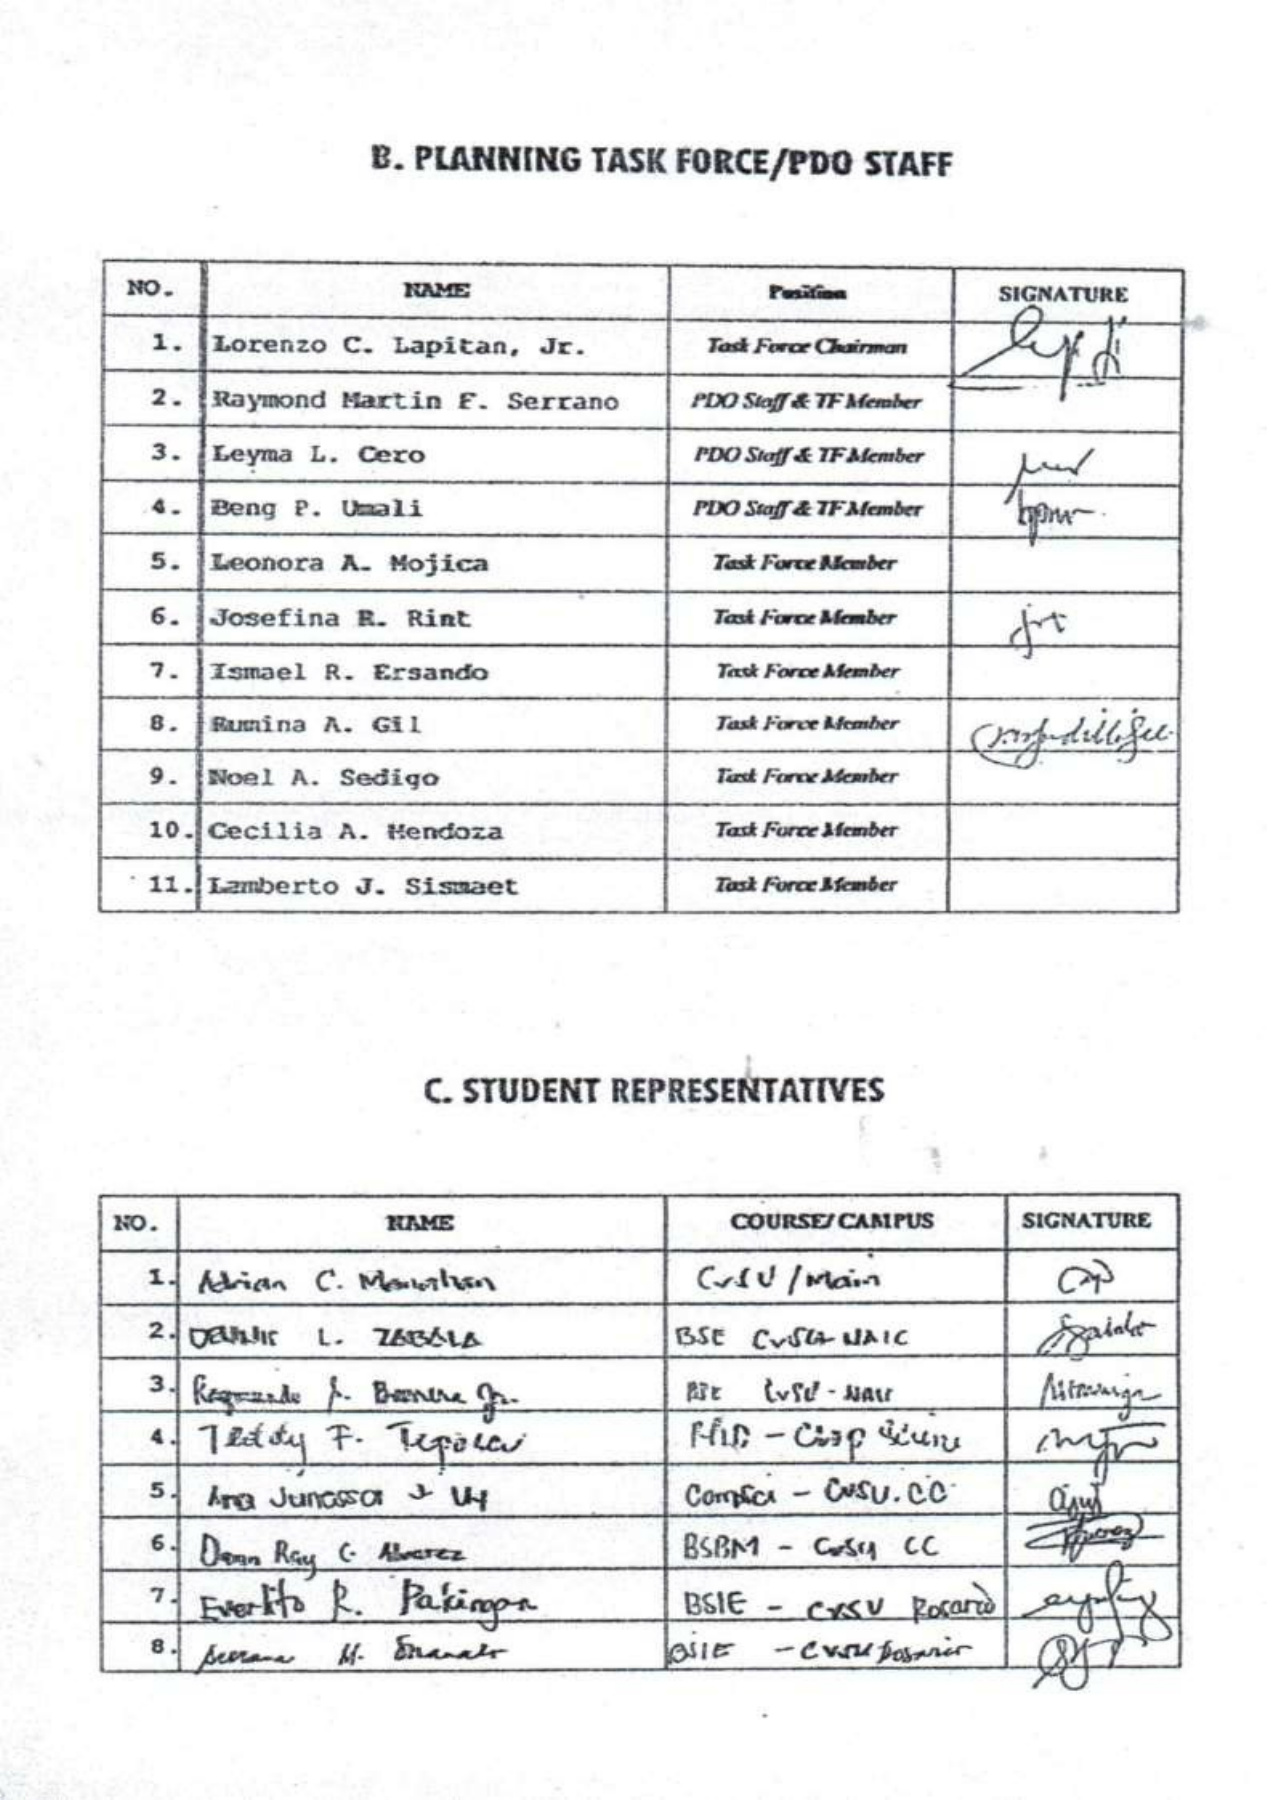 B. PLANNING TASK FORCE/PDO STAFF
NO. NAME Position SIGNATURE
1. Lorenzo C. Lapitan, Jr. Task Force Chairman
2. Raymond Martin F. Serrano PDO Staff & TF Member
3. Leyma L. Cero PDO Staff & TF Member
4. Beng P. Umali PDO Staff & TF Member
5. Leonora A. Mojica Task Force Member
6. Josefina R. Rint Task Force Member
7. Ismael R. Ersando Task Force Member
8. Rumina A. Gil Task Force Member
9. Noel A. Sedigo Task Force Member
10. Cecilia A. Mendoza Task Force Member
11. Lamberto J. Sismaet Task Force Member
C. STUDENT REPRESENTATIVES
NO. NAME COURSE/CAMPUS SIGNATURE
1. Adrian C. CvSU/Main
2. DENNIS L. ZABALA BSE CvSU-NAIC
3. Jr. CvSU-NAIC
4. Teddy F.
5. Ana Junassa Uy Compsci - CvSU.CC
6. Ray C. Alvarez BSBM - CvSU CC
7. Everlito R. Pakingan BSIE - CvSU Rosario
8. M. BSIE - CvSU Rosario